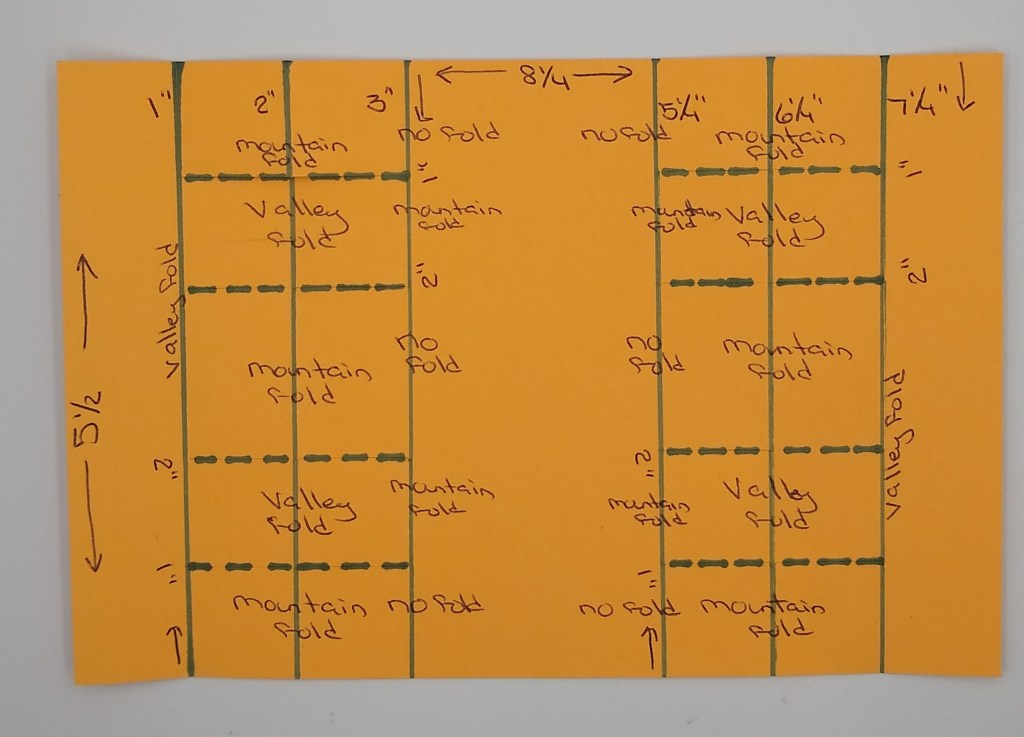 8 1/4
1" 2" 3" 5 1/4" 6 1/4" 7 1/4"
no fold no fold
mountain fold mountain fold
1" 1"
Valley fold mountain fold mountain fold Valley fold
2" 2"
valley fold
mountain fold no fold no fold mountain fold
valley fold
5 1/2
2" 2"
Valley fold mountain fold mountain fold Valley fold
1" 1"
mountain fold no fold no fold mountain fold